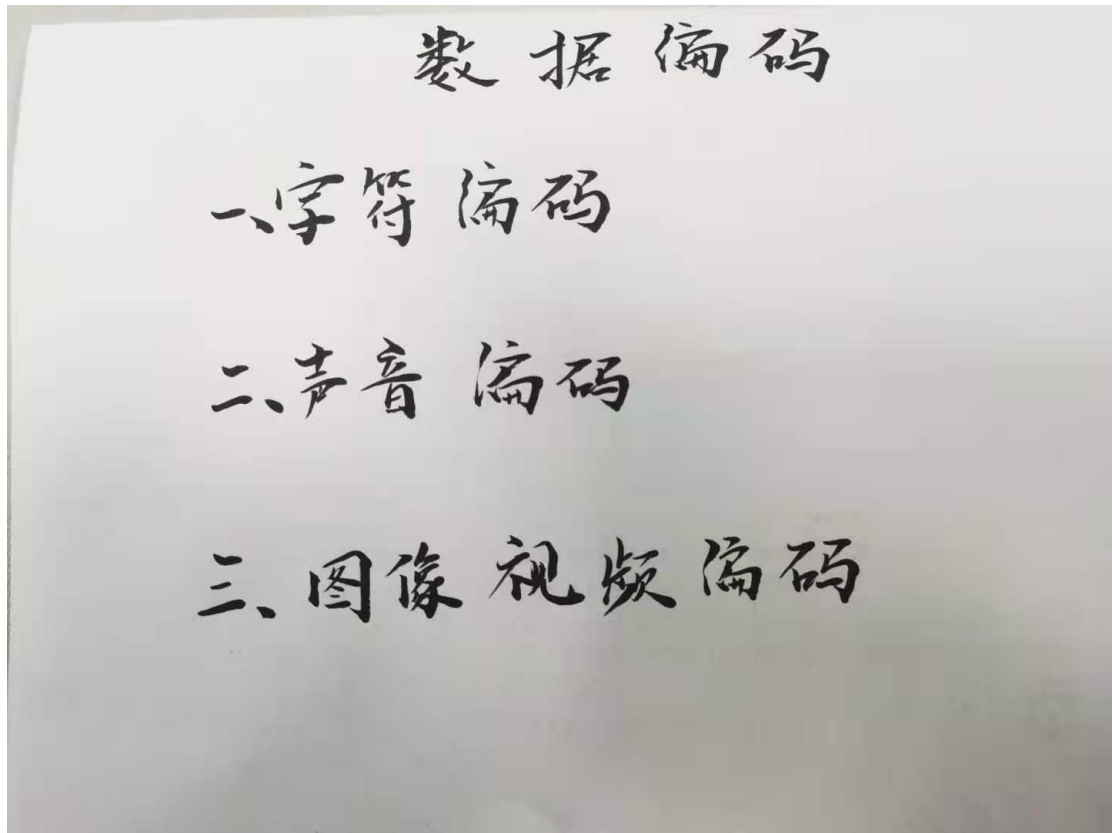 数据编码
一、字符编码
二、声音编码
三、图像视频编码